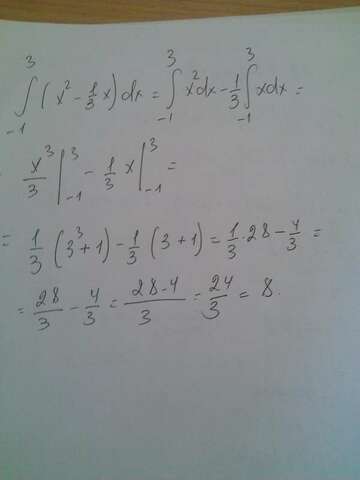 ∫₋₁³ (x² - 1/3 x) dx = ∫₋₁³ x² dx - 1/3 ∫₋₁³ x dx =
x³/3 |₋₁³ - 1/3 x |₋₁³ =
= 1/3 (3³ + 1) - 1/3 (3 + 1) = 1/3 · 28 - 4/3 =
= 28/3 - 4/3 = 28 - 4/3 = 24/3 = 8.